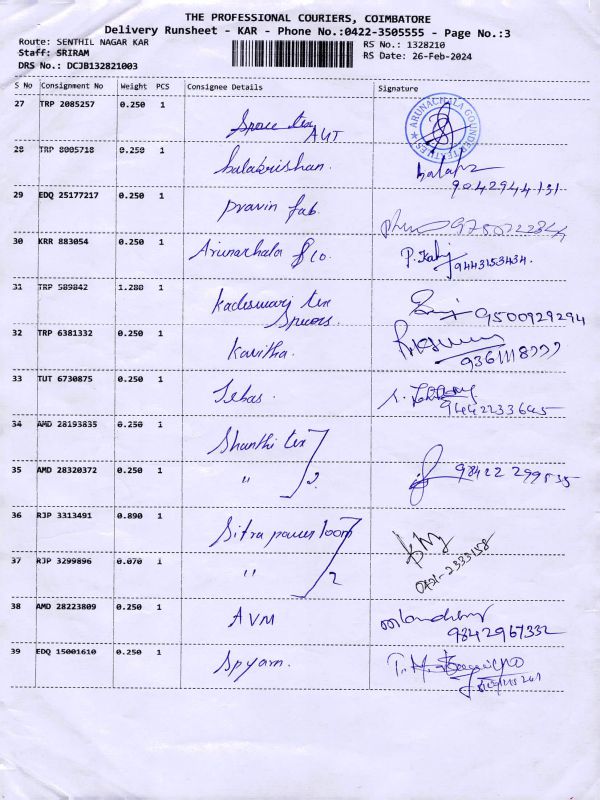 THE PROFESSIONAL COURIERS, COIMBATORE
Delivery Runsheet - KAR - Phone No.:0422-3505555 - Page No.:3
Route: SENTHIL NAGAR KAR
RS No.: 1328210
Staff: SRIRAM
RS Date: 26-Feb-2024
DRS No.: DCJB132821003
S No Consignment No Weight PCS Consignee Details Signature
27 TRP 2085257 0.250 1
Space tex
AUT
ARUNACHALA GOUNDER TEXTILES
28 TRP 8005718 0.250 1
balakrishan.
9042944131
29 EDQ 25177217 0.250 1
pravin fab.
30 KRR 883054 0.250 1
Arunachala & Co.
9443153434.
31 TRP 589842 1.280 1
Kadeswarj tex
Spiners.
9500929294
32 TRP 6381332 0.250 1
Kavitha.
33 TUT 6730875 0.250 1
Jebas.
9442233645
34 AMD 28193835 0.250 1
Shanthi tex
35 AMD 28320372 0.250 1
" 2.
98422 299535
36 RJP 3313491 0.890 1
Sitra power loom
37 RJP 3299896 0.070 1
" 2
0421-2333158
38 AMD 28223809 0.250 1
AVM
9842967332
39 EDQ 15001610 0.250 1
Spyam.